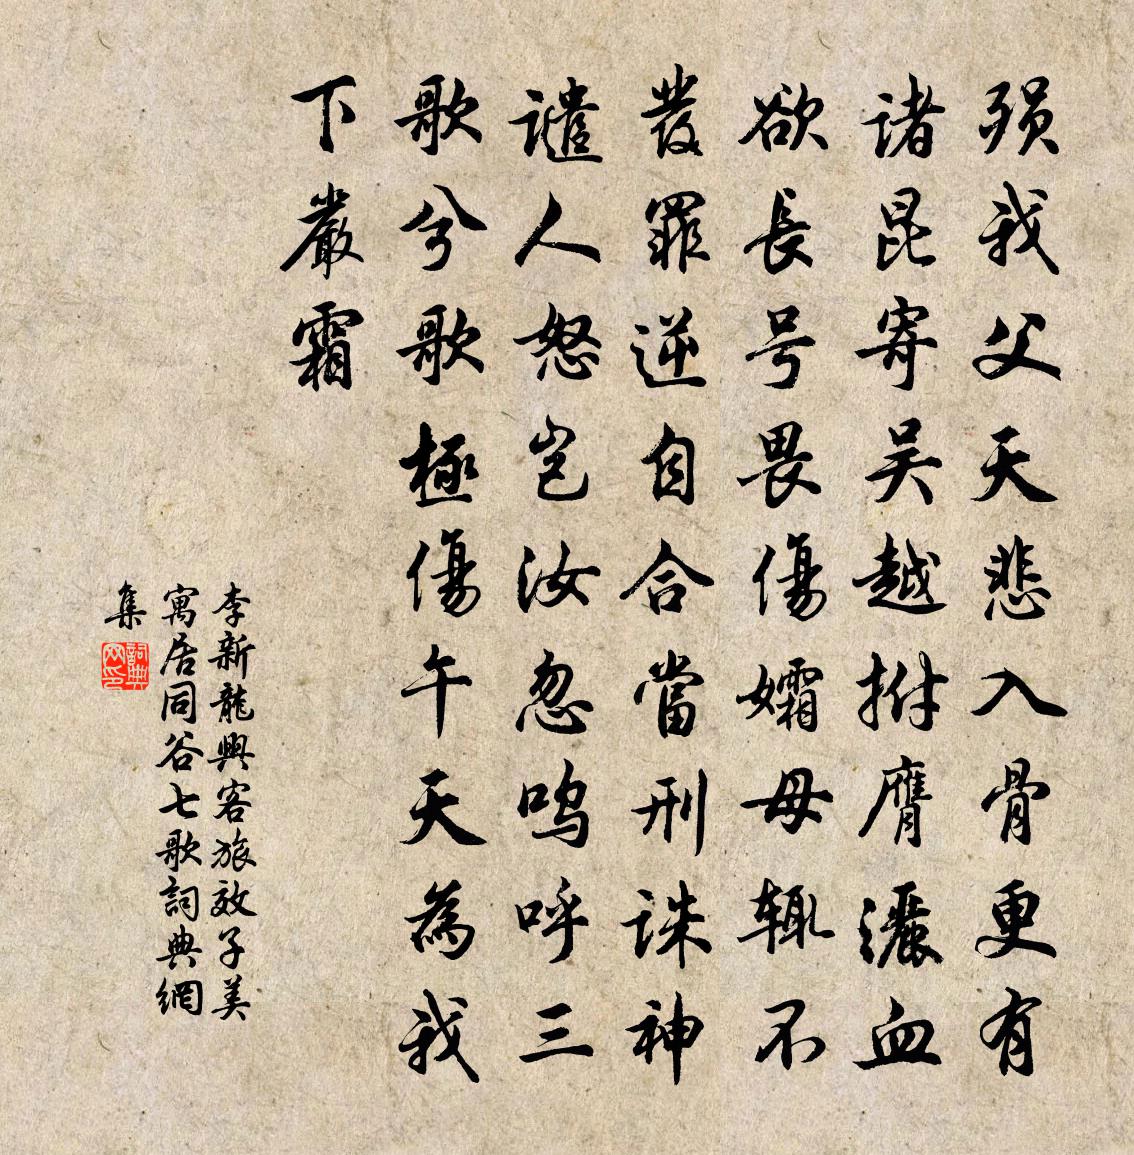 殒我父天悲入骨更有
诸昆寄吴越拊膺灑血
欲長号畏傷孀母辄不
發罪逆自合當刑诛神
譴人怒岂汝忽呜呼三
歌兮歌極傷午天為我
下嚴霜
李新龍興客旅效子美
寓居同谷七歌詞典網
集
詞典
网印